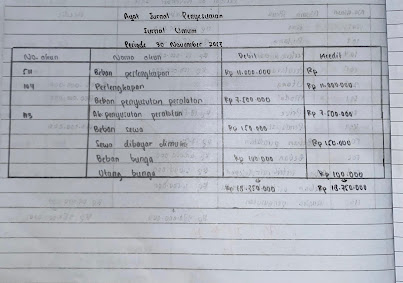 Ayat Jurnal Penyesuaian
Jurnal Umum
Periode 30 November 2017
No. akun Nama akun Debit Kredit
511 Beban perlengkapan Rp 11.000.000 Rp
104 Perlengkapan Rp 11.000.000
Beban penyusutan peralatan Rp 7.500.000
Ak penyusutan peralatan Rp 7.500.000
Beban sewa Rp 150.000
Sewa dibayar dimuka Rp 150.000
Beban bunga Rp 100.000
Utang bunga Rp 100.000
Rp 18.750.000 Rp 18.750.000